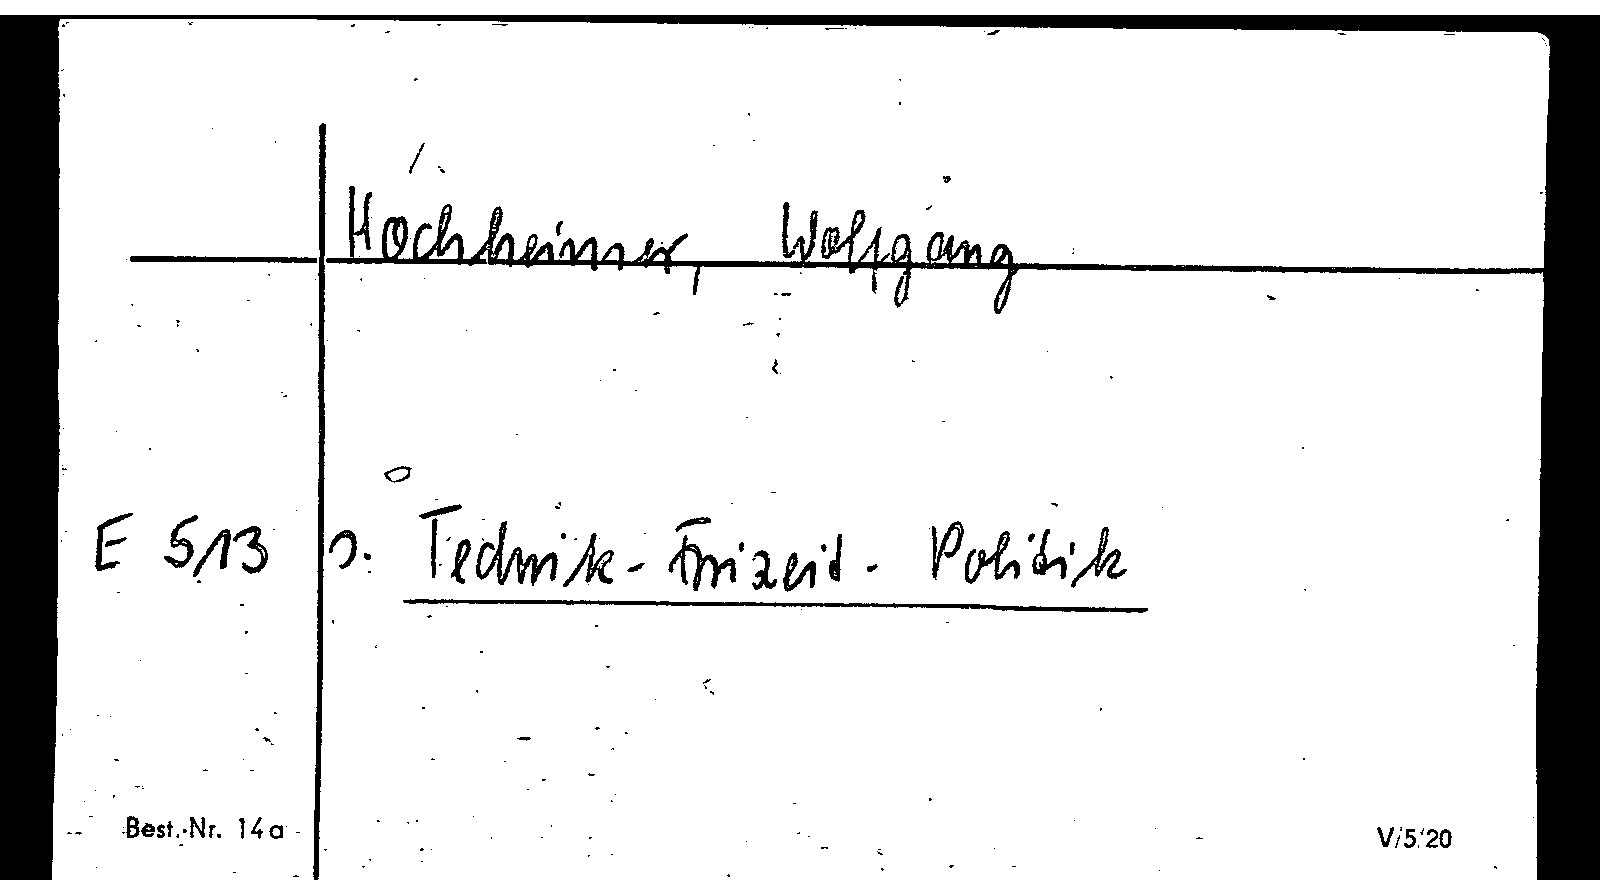 Hochheimer, Wolfgang
E 513 s. Technik - Freizeit - Politik
Best.-Nr. 14a V/5/20